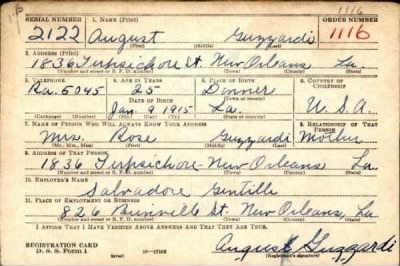 1116
SERIAL NUMBER 1. NAME (Print) ORDER NUMBER
2122 August Guzzardi 1116
(First) (Middle) (Last)
2. ADDRESS (Print)
1836 Terpsichore St. New Orleans La.
(Number and street or R. F. D. number) (Town) (County) (State)
3. TELEPHONE 4. AGE IN YEARS 5. PLACE OF BIRTH 6. COUNTRY OF CITIZENSHIP
Ra. 5045 25 Donner
DATE OF BIRTH (Town or county)
Jan. 9 1915 La. U.S.A.
(Exchange) (Number) (Mo.) (Day) (Yr.) (State or country)
7. NAME OF PERSON WHO WILL ALWAYS KNOW YOUR ADDRESS 8. RELATIONSHIP OF THAT PERSON
Mrs. Rose Guzzardi Mother
(Mr., Mrs., Miss) (First) (Middle) (Last)
9. ADDRESS OF THAT PERSON
1836 Terpsichore New Orleans La.
(Number and street or R. F. D. number) (Town) (County) (State)
10. EMPLOYER'S NAME
Salvadore Gentille
11. PLACE OF EMPLOYMENT OR BUSINESS
826 Bienville St. New Orleans, La.
(Number and street or R. F. D. number) (Town) (County) (State)
I AFFIRM THAT I HAVE VERIFIED ABOVE ANSWERS AND THAT THEY ARE TRUE.
REGISTRATION CARD
D. S. S. Form 1 16—17105 August Guzzardi
(Registrant's signature)